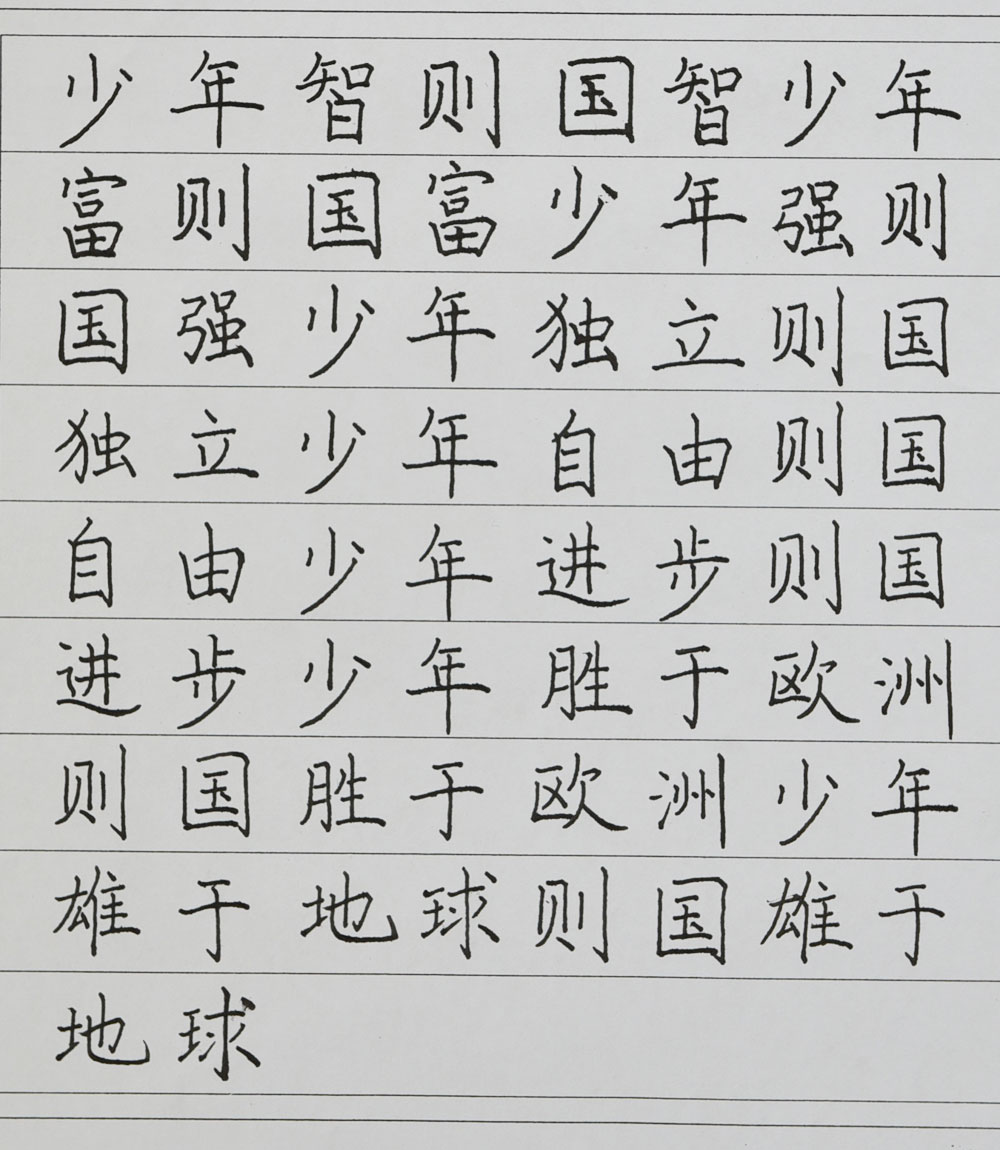 少年智则国智少年
富则国富少年强则
国强少年独立则国
独立少年自由则国
自由少年进步则国
进步少年胜于欧洲
则国胜于欧洲少年
雄于地球则国雄于
地球